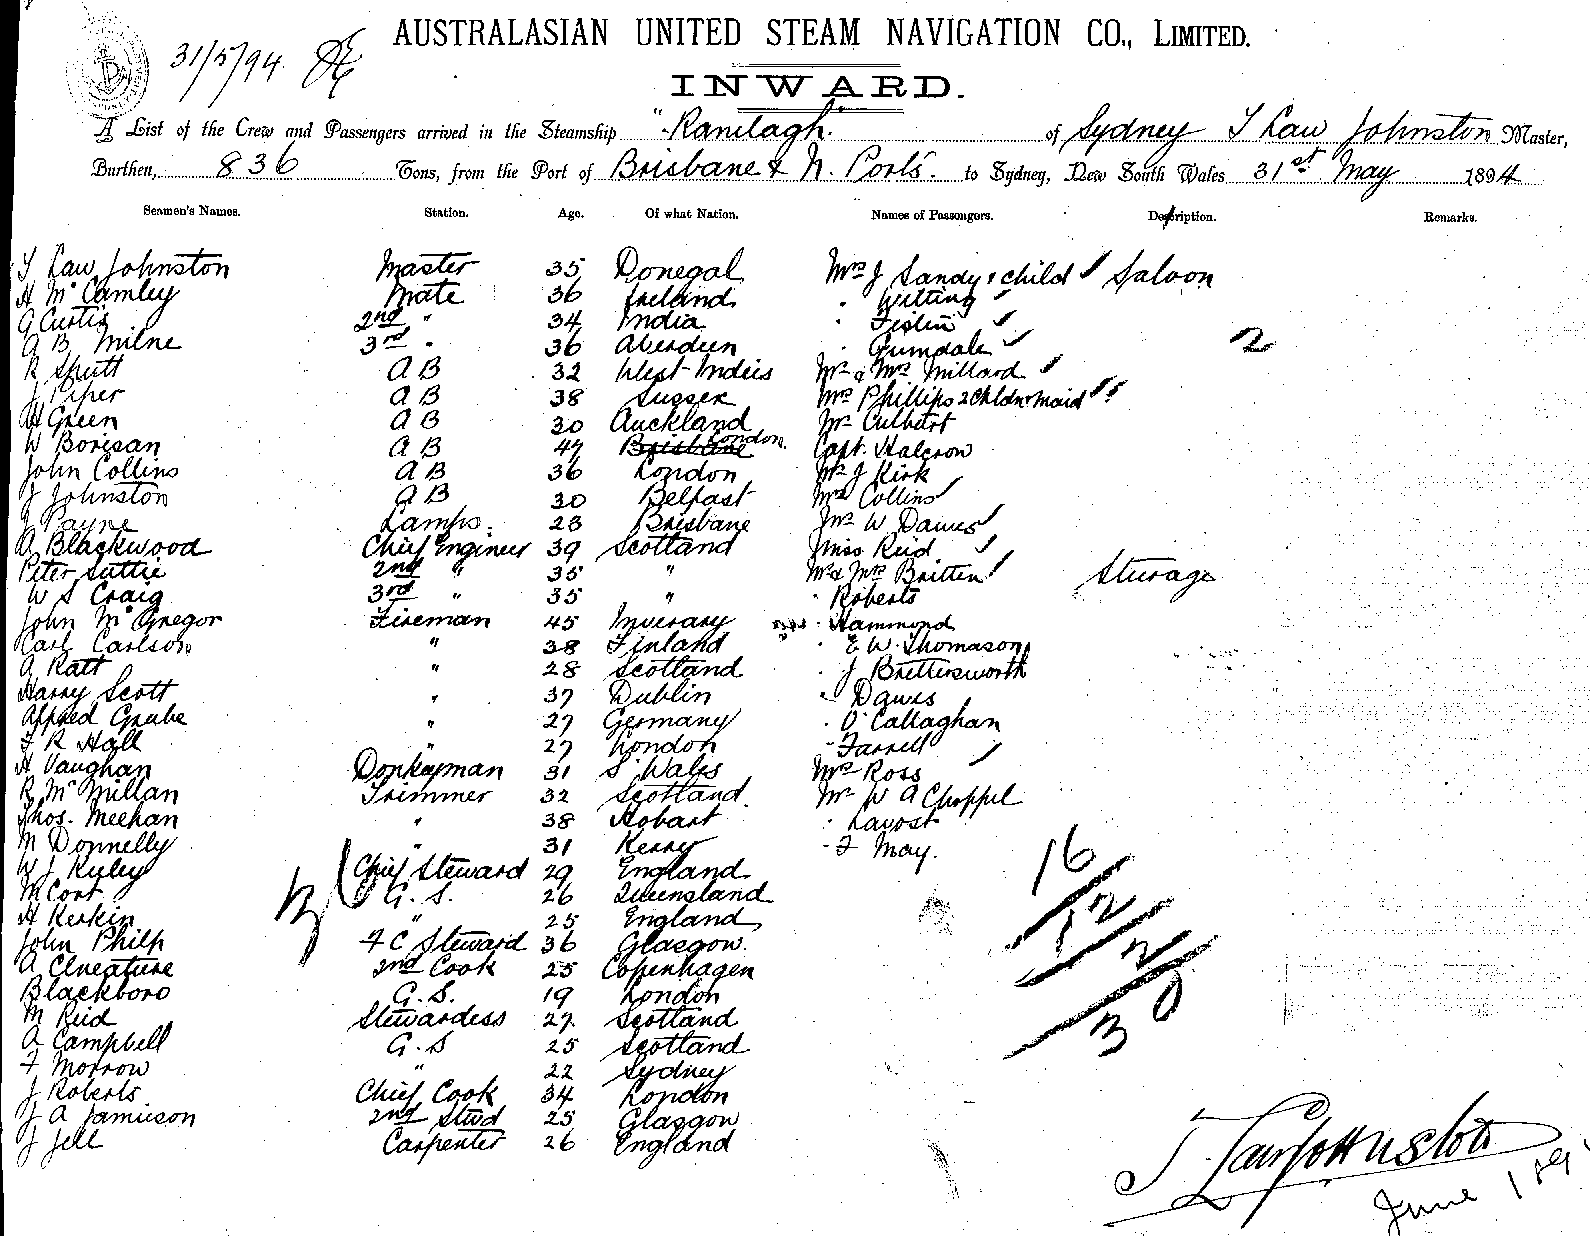 AUSTRALASIAN UNITED STEAM NAVIGATION CO., LIMITED.
31/5/94
INWARD.
A List of the Crew and Passengers arrived in the Steamship "Ranelagh" of Sydney T Law Johnston Master,
Burthen, 836 Tons, from the Port of Brisbane & N. Ports. to Sydney, New South Wales 31st May 1894
Seamen's Names. Station. Age. Of what Nation. Names of Passengers. Description. Remarks.
T Law Johnston Master 35 Donegal Mrs J Sandy & child Saloon
H McCamley Mate 36 Ireland " Witting
G Curtis 2nd " 34 India "
A B Milne 3rd " 36 Aberdeen " Gumdale 2
R Sputt A B 32 West Indies Mr & Mrs Millard
J Piper A B 38 Sussex Mrs Phillips 2 Chldn & Maid
H Green A B 30 Auckland Mr Culbert
W Borisan A B 47 Brisbane London Capt. Halcrow
John Collins A B 36 London Mr J Kirk
J Johnston A B 30 Belfast Mrs Collins
J Payne Lamps. 23 Brisbane Mrs W Dawes
A Blackwood Chief Engineer 39 Scotland Miss Reid
Peter Suttie 2nd " 35 " Mr & Mrs Britten Steerage
W S Craig 3rd " 35 " " Roberts
John McGregor Fireman 45 Inverary " Hammond
Carl Carlson " 38 Finland " E W Thomason
A Ratt " 28 Scotland " J Brettersworth
Harry Scott " 37 Dublin " Dawes
Alfred Grube " 27 Germany " O'Callaghan
F R Hall " 27 London " Farrell
H Vaughan Donkeyman 31 S. Wales Mrs Ross
R McMillan Trimmer 32 Scotland Mr W A Choppel
Thos. Meehan " 38 Hobart " Lavost
M Donnelly " 31 Kerry " F May.
W J Ryley Chief Steward 29 England 16
M Cort G. S. 26 Queensland
H Kerkin " 25 England 12
John Philp F C Steward 36 Glasgow. 2
A Clneature 2nd Cook 25 Copenhagen
Blackboro G. S. 19 London 30
M Reid Stewardess 27 Scotland
A Campbell G. S 25 Scotland
F Morrow " 22 Sydney
J Roberts Chief Cook 34 London
J A Jamieson 2nd Stwd 25 Glasgow
J Jell Carpenter 26 England
T Law Johnston
June 1